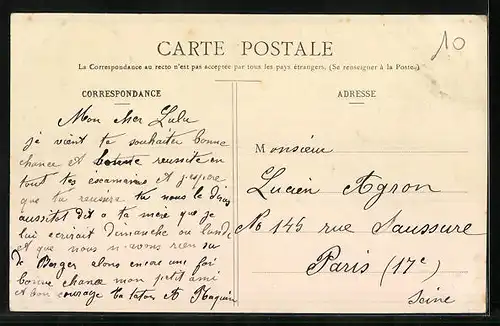 10
CARTE POSTALE
La Correspondance au recto n'est pas acceptée par tous les pays étrangers. (Se renseigner à la Poste.)
CORRESPONDANCE
Mon cher Lulu
je vient te souhaiter bonne
chance et bonne reussite en
tout tes éxamaine et j'espere
que tu reusira tu nous le diras
aussitot dit a ta mere que je
lui ecrirait dimanche ou lundi
et que nous n'avons rien su
de Berger alons encore une foi
bonne chance mon petit ami
et bon courage ta tatan
ADRESSE
Monsieur
Lucien Agron
No 145 rue Saussure
Paris (17e)
Seine